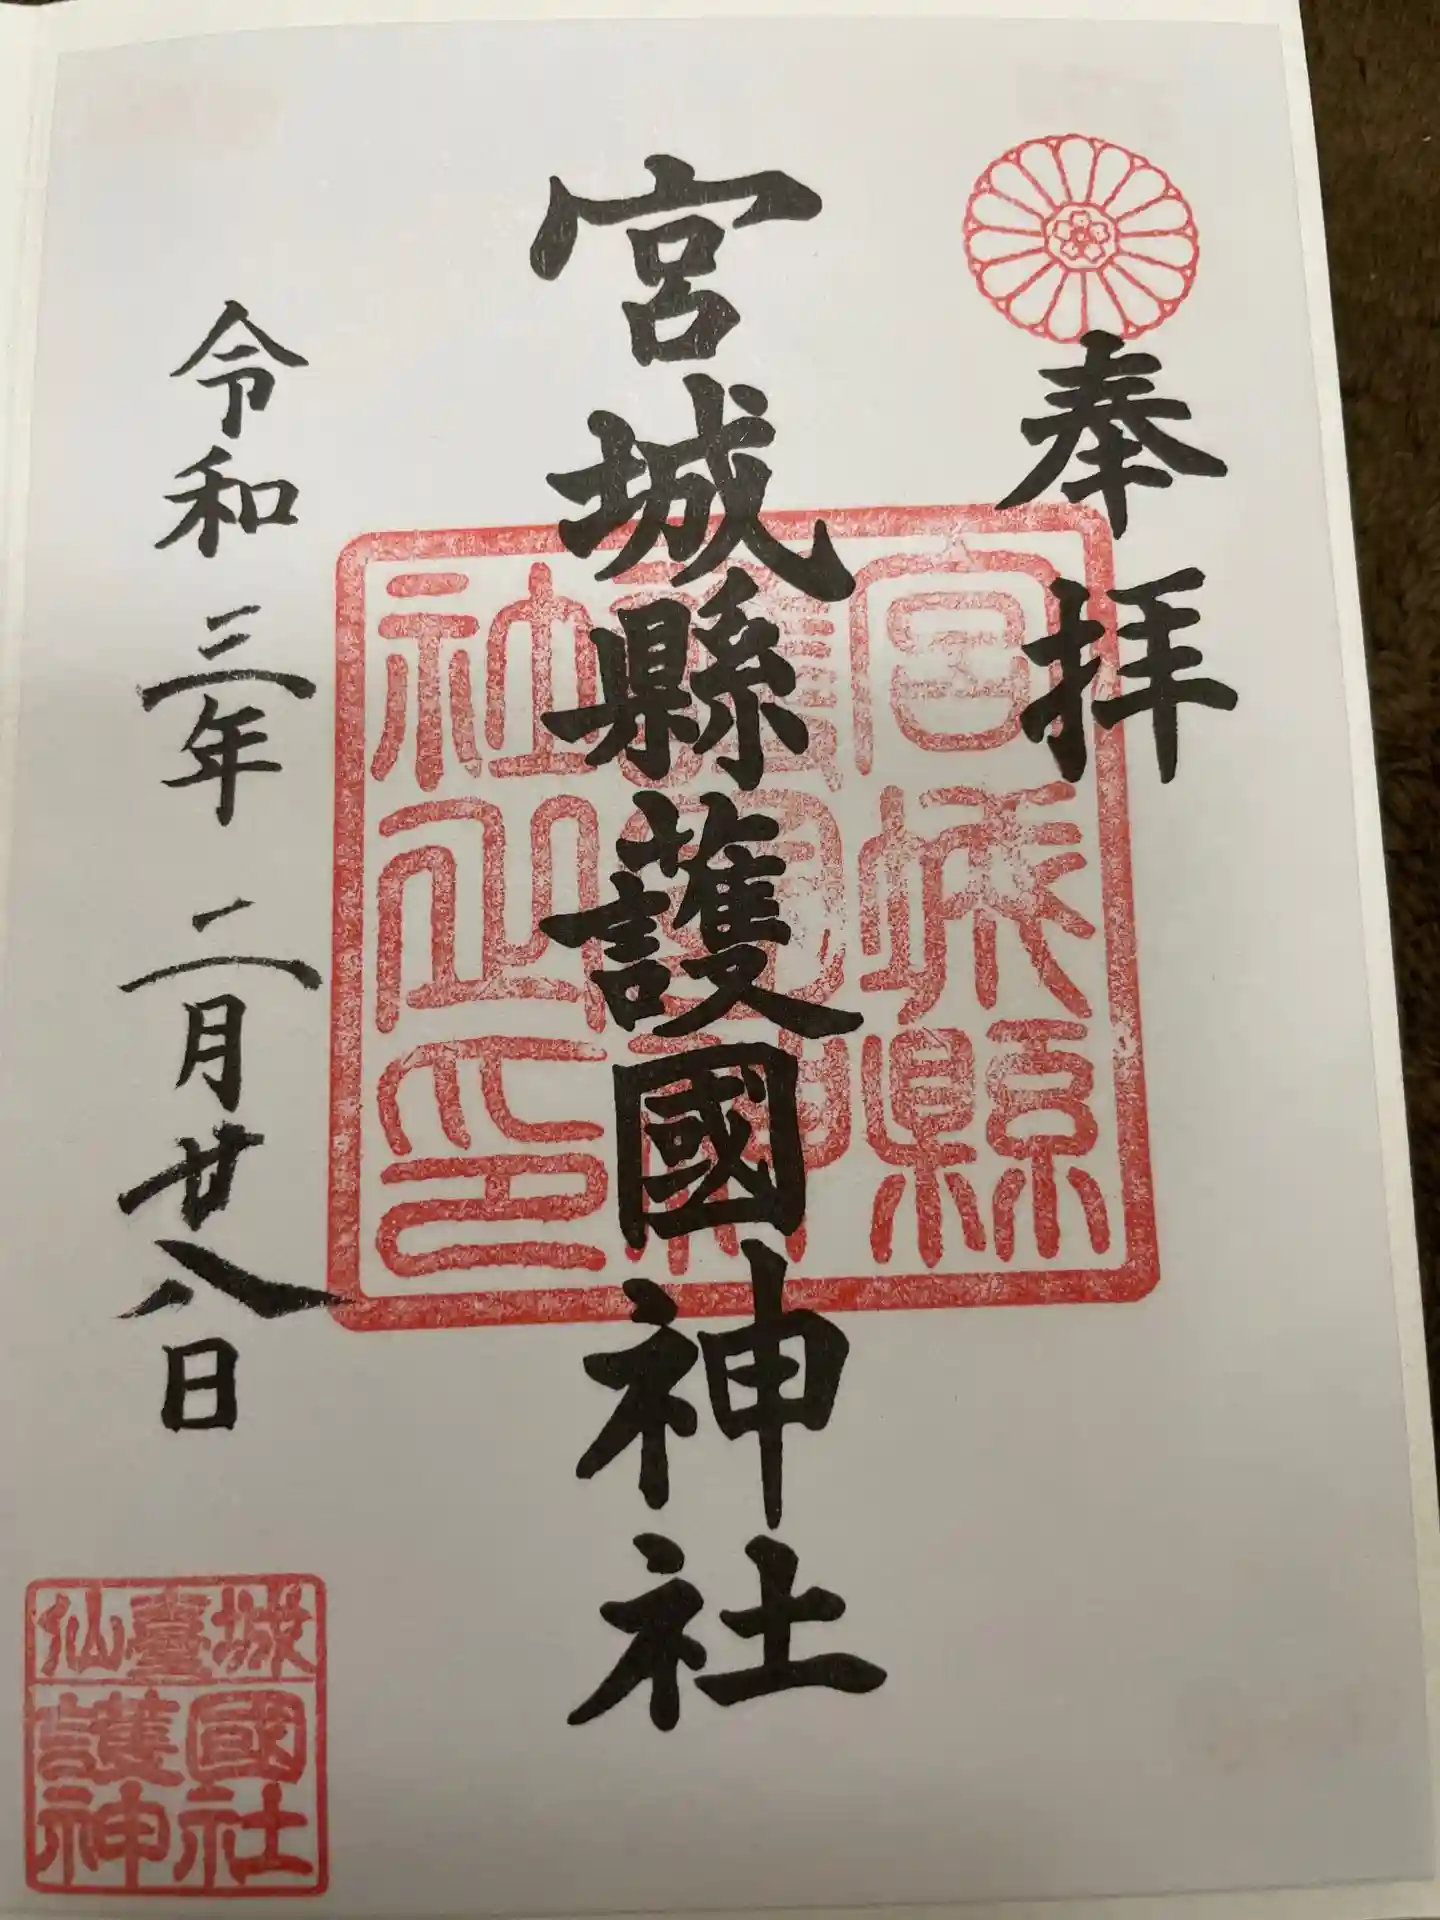 奉拝
宮城縣護國神社
宮城縣
護國神
社之印
令和三年二月廿八日
仙臺城
護國
神社